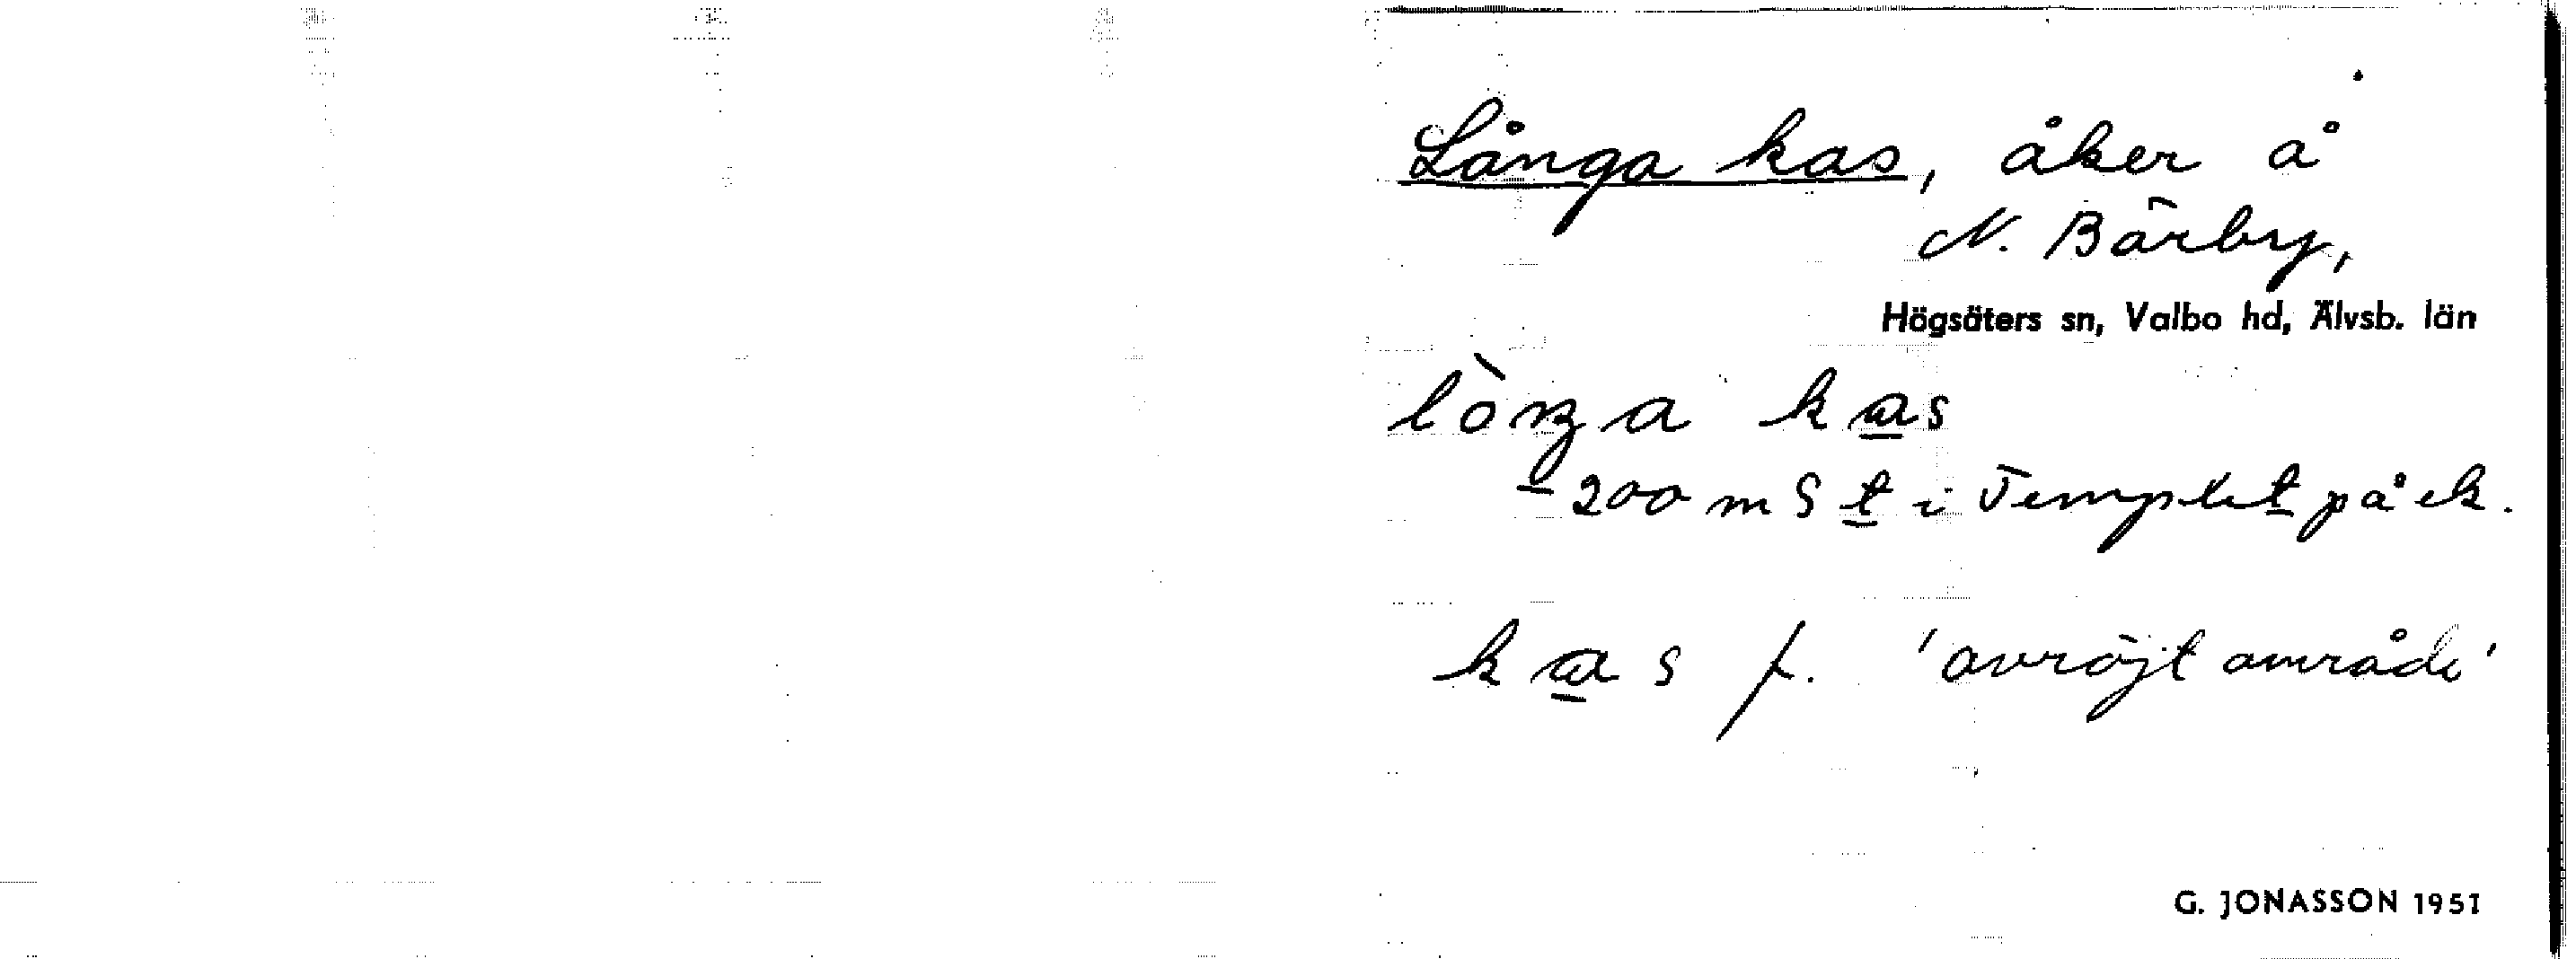 Långa kas, åker å
N. Bärby,
Högsäters sn, Valbo hd, Älvsb. län
lòŋa kas
200 m S t i Templet på ek.
kas f. 'avröjt område'
G. JONASSON 1951